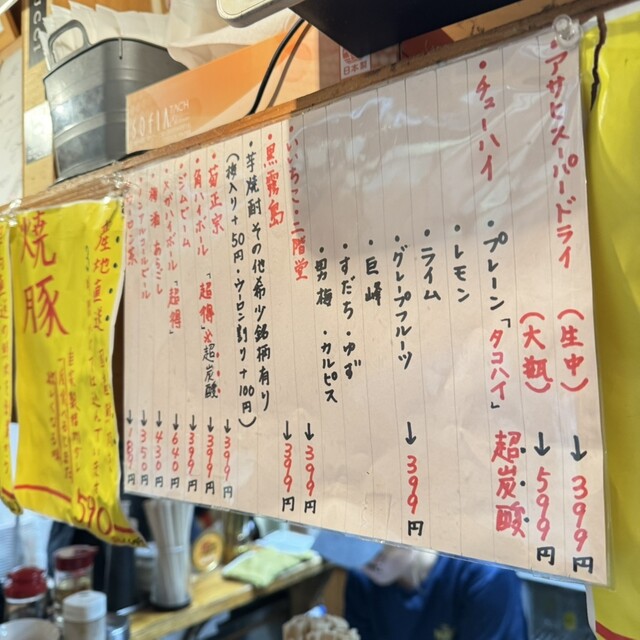 ・アサヒスーパードライ (生中) → 399円
(大瓶) → 599円
・チューハイ
・プレーン「タコハイ」超炭酸
・レモン
・ライム
・グレープフルーツ → 399円
・巨峰
・すだち・ゆず
・男梅・カルピス
いいちこ・二階堂 → 399円
・黒霧島 → 399円
・芋焼酎 その他希少銘柄有り
(梅入り+50円・ウーロン割り+100円)
・菊正宗 → 399円
・角ハイボール「超樽」※超炭酸 → 399円
・ジムビーム → 399円
「超樽」 → 640円
梅酒 あらごし → 430円
→ 350円
産地直送
焼豚
590
KOFIA
日本製